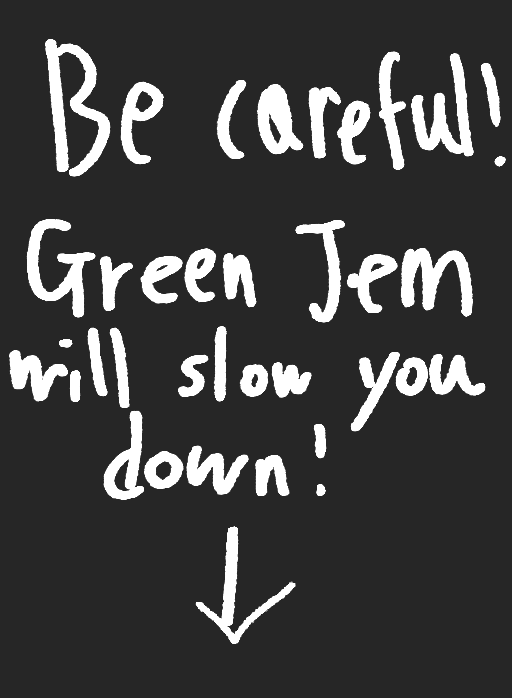 Be careful!
Green Jem
will slow you
down!